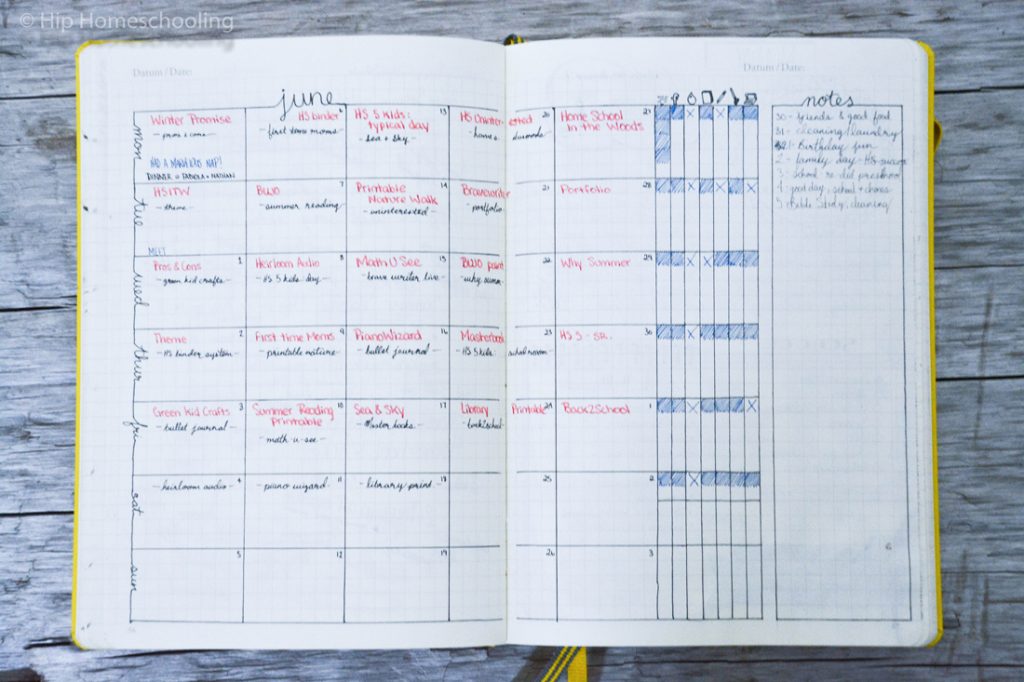 © Hip Homeschooling
Datum / Date:
Datum / Date:
june
notes
mon
Winter Promise
- pros & cons -
HAD A MARIA KIDS NAP!
DINNER @ PAMELA + NATHAN
HS binder
- first time moms -
HS 5 kids:
typical day 13
- sea & sky -
20
Home School 27
in the Woods
tue
HSITW
- theme -
MEET
BUJO 7
- summer reading -
Printable 14
Nature Walk
- uninterested -
Bravewriter 21
- portfolio -
Portfolio 28
wed
Pros & Cons 1
- green kid crafts -
Heirloom Audio 8
- HS 5 kids day -
Math U See 15
- brave writer live -
BUJO 22
- why summer
Why Summer 29
thur
Theme 2
- HS binder system -
First time Moms 9
- printable nature -
PianoWizard 16
- bullet journal -
23
- HS 5 kids school room -
HS 5 - SR. 30
fri
Green Kid Crafts 3
- bullet journal -
Summer Reading 10
Printable
- math u see -
Sea & Sky 17
Library Printable 24
- back2school -
Back2School 1
sat
- heirloom audio - 4
- piano wizard - 11
- library print - 18
25
2
sun
5
12
19
26
3
30 - friends & good food
31 - cleaning/laundry
1 - Birthday fun
2 - family day - HS
3 - school re. did preschool
4 - good day, school + chores
5 - Bible Study, cleaning
6